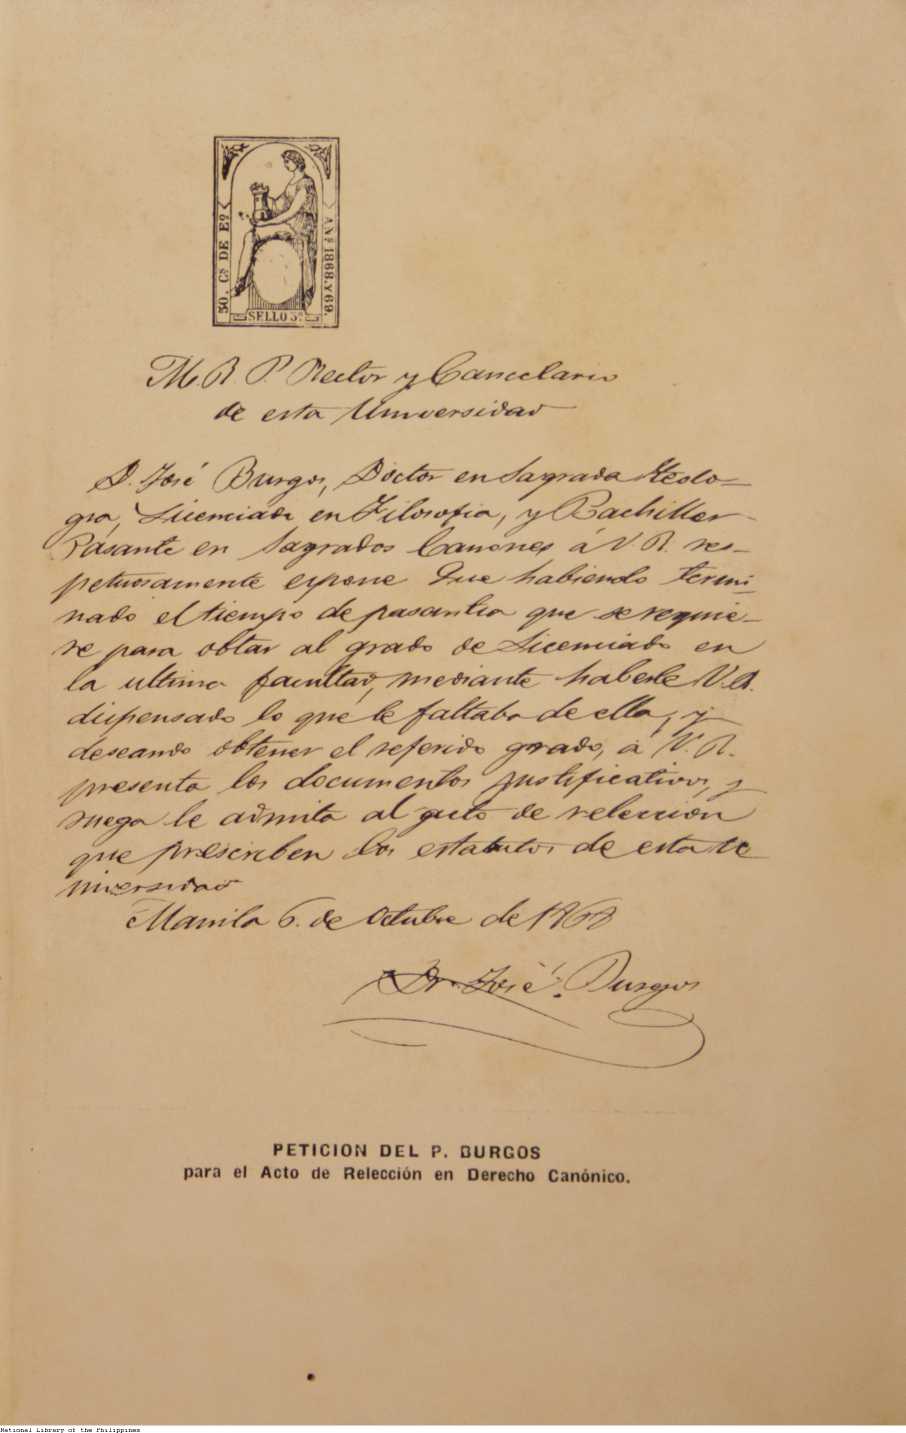 50. Cs DE Eo
AÑs 1868 Y 69.
SELLO 3o
M. R. P. Rector y Cancelario
de esta Universidad
D. José Burgos, Doctor en Sagrada Teolo-
gia, Licenciado en Filosofia, y Bachiller
Pasante en Sagrados Canones á V. R. res-
petuosamente expone Que habiendo termi-
nado el tiempo de pasantia que se requie-
re para obtar al grado de Licenciado en
la ultima facultad, mediante haberle V. R.
dispensado lo que le faltaba de ella, y
deseando obtener el referido grado, á V. R.
presenta los documentos justificativos, y
ruega le admita al acto de releccion
que prescriben los estatutos de esta U
niversidad
Manila 6. de Octubre de 1868
Dr. José Burgos
PETICION DEL P. BURGOS
para el Acto de Relección en Derecho Canónico.
National Library of the Philippines